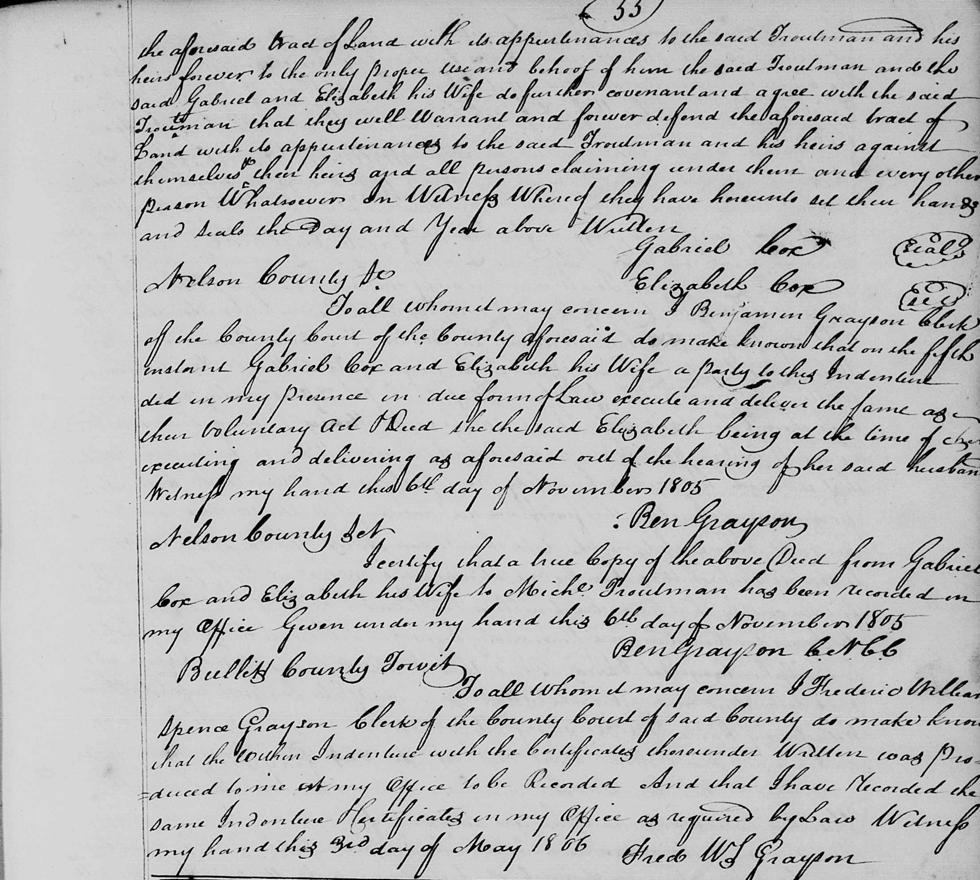 55
the aforesaid tract of Land with its appurtenances to the said Troutman and his
heirs forever to the only proper use and behoof of him the said Troutman and the
said Gabriel and Elizabeth his Wife do further covenant and agree with the said
Troutman that they will Warrant and forever defend the aforesaid tract of
Land with its appurtenances to the said Troutman and his heirs against
themselves & their heirs and all persons claiming under them and every other
person Whatsoever In Witness Whereof they have hereunto set their hands
and seals the Day and Year above Written
Gabriel Cox Seal
Nelson County Sc
Elizabeth Cox
To all whom it may concern I Benjamin Grayson Clerk
of the County Court of the County aforesaid do make known that on the fifth
instant Gabriel Cox and Elizabeth his Wife a party to this Indenture
did in my presence in due form of Law execute and deliver the same as
their Voluntary Act & Deed she the said Elizabeth being at the time of
executing and delivering as aforesaid out of the hearing of her said husban
Witness my hand this 6th day of November 1805
: Ben Grayson
Nelson County Sct
I certify that a true Copy of the above Deed from Gabriel
Cox and Elizabeth his Wife to Michl Troutman has been recorded in
my Office Given under my hand this 6th day of November 1805
Ben Grayson C N C C
Bullitt County Towit
To all whom it may concern I Frederic William
Spence Grayson Clerk of the County Court of said County do make know
that the Within Indenture with the Certificates thereunder Written was pro=
=duced to me at my Office to be Recorded And that I have recorded the
same Indenture Certificates in my Office as required by Law Witness
my hand this 3rd day of May 1806
Fred WS Grayson